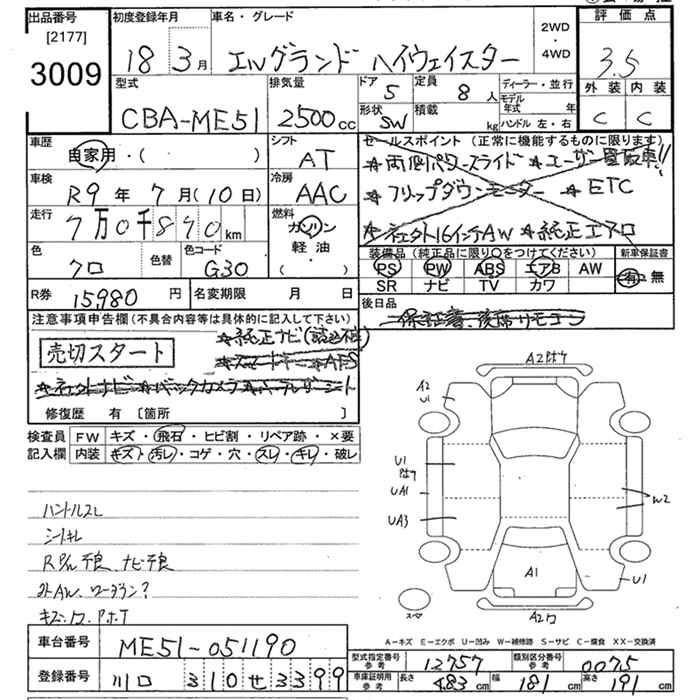 出品番号
[2177]
3009
初度登録年月
18年3月
車名・グレード
エルグランド ハイウェイスター
2WD・4WD
評価点
3.5
外装 内装
C C
型式
CBA-ME51
排気量
2500cc
ドア 5
形状 SW
定員 8人
積載 kg
ディーラー・並行
モデル年式 年
ハンドル 左・右
車歴
自家用・( )
シフト
AT
セールスポイント (正常に機能するものに限ります)
*両側パワースライド *ユーザー買取車!!
*フリップダウンモニター *ETC
*ジェクト16インチAW *純正エアロ
車検
R9年7月(10日)
冷房
AAC
走行
7万0千890km
燃料
ガソリン
軽油
( )
色
クロ
色替
色コード
G30
装備品 (純正品に限り○をつけてください)
PS PW ABS エアB AW
SR ナビ TV カワ
新車保証書
有・無
R券 15,980円
名変期限 月 日
後日品
保証書、後席リモコン
注意事項申告欄(不具合内容等は具体的に記入して下さい)
売切スタート
*純正ナビ(読込不良)
*スマートキー *AFS
*バックカメラ *パーフルシート
修復歴 有 [箇所 ]
検査員記入欄
FW キズ・飛石・ヒビ割・リペア跡・×要
内装 キズ・汚レ・コゲ・穴・スレ・キレ・破レ
ハンドルスレ
シートキレ
RPw不良、ナビ不良
外AW、ローダウン?
キズ・ワ.PホT
A2はげ
A2
U1
U1
はげ
UA1
UA3
W2
A1
U1
スペア
A2ワ
A－キズ E－エクボ U－凹み W－補修跡 S－サビ C－腐食 XX－交換済
車台番号
ME51-051190
登録番号
川口 310 せ 3399
型式指定番号 参考 12757
類別区分番号 参考 0075
車庫証明用 参考 長さ 483cm 幅 181cm 高さ 191cm